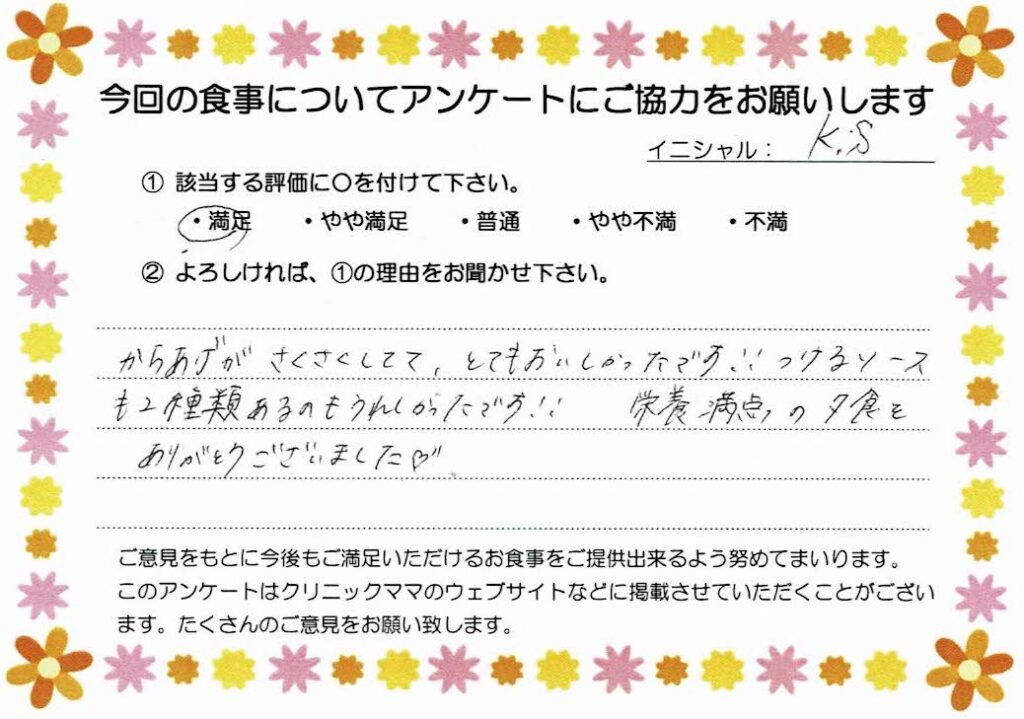 今回の食事についてアンケートにご協力をお願いします
イニシャル： K.S
① 該当する評価に〇を付けて下さい。
・満足 ・やや満足 ・普通 ・やや不満 ・不満
② よろしければ、①の理由をお聞かせ下さい。
からあげが さくさくしてて、とてもおいしかったです!! つけるソース
も2種類あるのもうれしかったです!! 栄養満点の夕食を
ありがとうございました♡
ご意見をもとに今後もご満足いただけるお食事をご提供出来るよう努めてまいります。
このアンケートはクリニックママのウェブサイトなどに掲載させていただくことがござい
ます。たくさんのご意見をお願い致します。